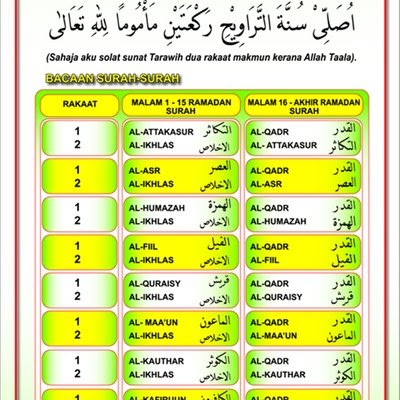 اُصَلِّيْ سُنَّةَ التَّرَاوِيْحِ رَكْعَتَيْنِ مَأْمُومًا لِلّٰهِ تَعَالٰى
(Sahaja aku solat sunat Tarawih dua rakaat makmun kerana Allah Taala).
BACAAN SURAH-SURAH
RAKAAT MALAM 1 - 15 RAMADAN SURAH MALAM 16 - AKHIR RAMADAN SURAH
1 AL-ATTAKASUR التكاثر AL-QADR القدر
2 AL-IKHLAS الاخلاص AL- ATTAKASUR التكاثر
1 AL-ASR العصر AL-QADR القدر
2 AL-IKHLAS الاخلاص AL-ASR العصر
1 AL-HUMAZAH الهمزة AL-QADR القدر
2 AL-IKHLAS الاخلاص AL-HUMAZAH الهمزة
1 AL-FIIL الفيل AL-QADR القدر
2 AL-IKHLAS الاخلاص AL-FIIL الفيل
1 AL-QURAISY قريش AL-QADR القدر
2 AL-IKHLAS الاخلاص AL-QURAISY قريش
1 AL- MAA'UN الماعون AL-QADR القدر
2 AL-IKHLAS الاخلاص AL-MAA'UN الماعون
1 AL-KAUTHAR الكوثر AL-QADR القدر
2 AL-IKHLAS الاخلاص AL-KAUTHAR الكوثر
1 AL-KAFIRUUN الكافرون AL-QADR القدر